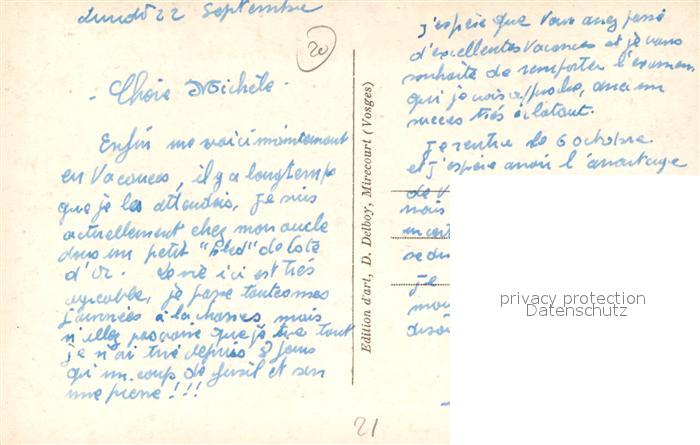 Lundi 22 Septembre
20
- Chère Michèle -
Enfin me voici maintenant
en Vacances, il y a longtemps
que je les attendais, je suis
actuellement chez mon oncle
dans un petit "bled" de Côte
d'Or. La vie ici est très
agréable, je passe toutes mes
journées à la chasse, mais
n'allez pas croire que je tue tout
je n'ai tiré depuis 8 jours
qu'un coup de fusil et sur
une pierre !!!
Edition d'art, D. Delboy, Mirecourt (Vosges)
J'espère que Vous avez passé
d'excellentes Vacances et je vous
souhaite de remporter l'examen,
qui je crois approche, avec un
succès très éclatant.
Je rentre le 6 octobre
et j'espère avoir l'avantage
de
mais
Je
21
privacy protection
Datenschutz